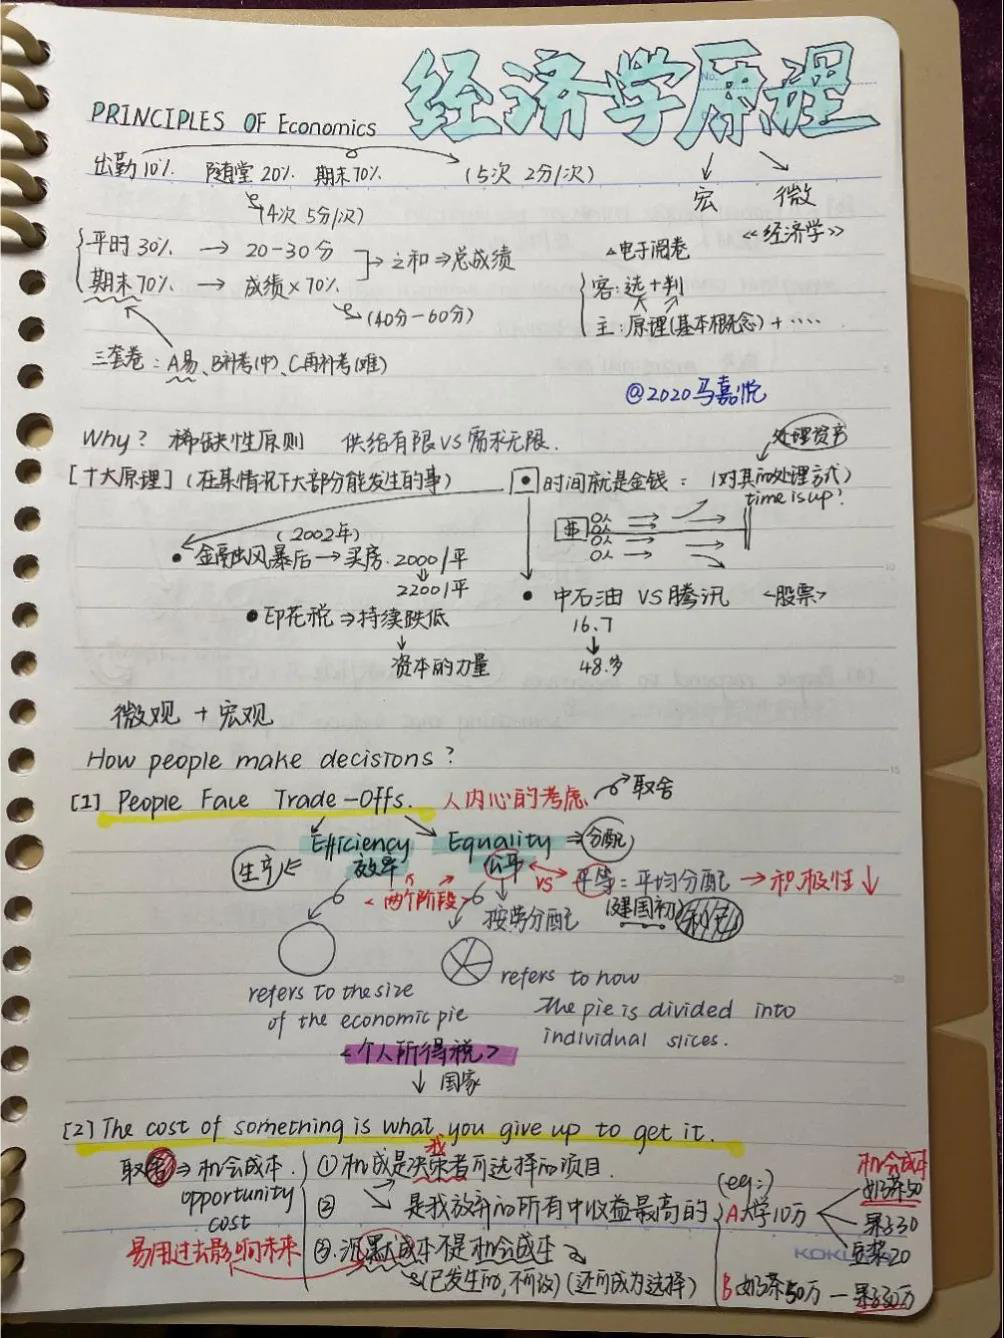 经济学原理
PRINCIPLES OF Economics
宏 微
《经济学》
出勤10% 随堂20% 期末70% (5次 2分/次)
(4次 5分/次)
平时30% → 20-30分
期末70% → 成绩×70%
之和⇒总成绩
(40分-60分)
△电子阅卷
客:选+判
主:原理(基本概念)+····
三套卷:A易、B补考(中)、C再补考(难)
@2020马嘉悦
Why? 稀缺性原则 供给有限VS需求无限.
处理资产
[十大原理](在某情况下大部分能发生的事)
时间就是金钱:(对其的处理方式)
time is up?
(2002年)
•金融风暴后→买房.2000/平
↓
2200/平
•印花税⇒持续跌低
↓
资本的力量
•中石油 VS 腾讯 <股票>
16.7
↓
48.岁
微观 + 宏观
How people make decisions?
[1] People Face Trade-Offs. 人内心的考虑 取舍
Efficiency Equality ⇒分配
生产⇐ 效率 公平 vs 平等:平均分配→积极性↓
<两个阶段> 按劳分配 (建国初)
refers to the size
of the economic pie
refers to how
The pie is divided into
individual slices.
<个人所得税>
↓国家
[2] The cost of something is what you give up to get it.
取舍⇒机会成本
opportunity
cost
易用过去影响未来
我
①机成是决策者可选择的项目.
②是我放弃的所有中收益最高的
③.沉默成本不是机会成本
(已发生的,不可改)(还可成为选择)
(eg:) 机会成本
A大学10万 奶茶50
果子30
豆浆20
KOKUYO
B奶茶50万—果子30万